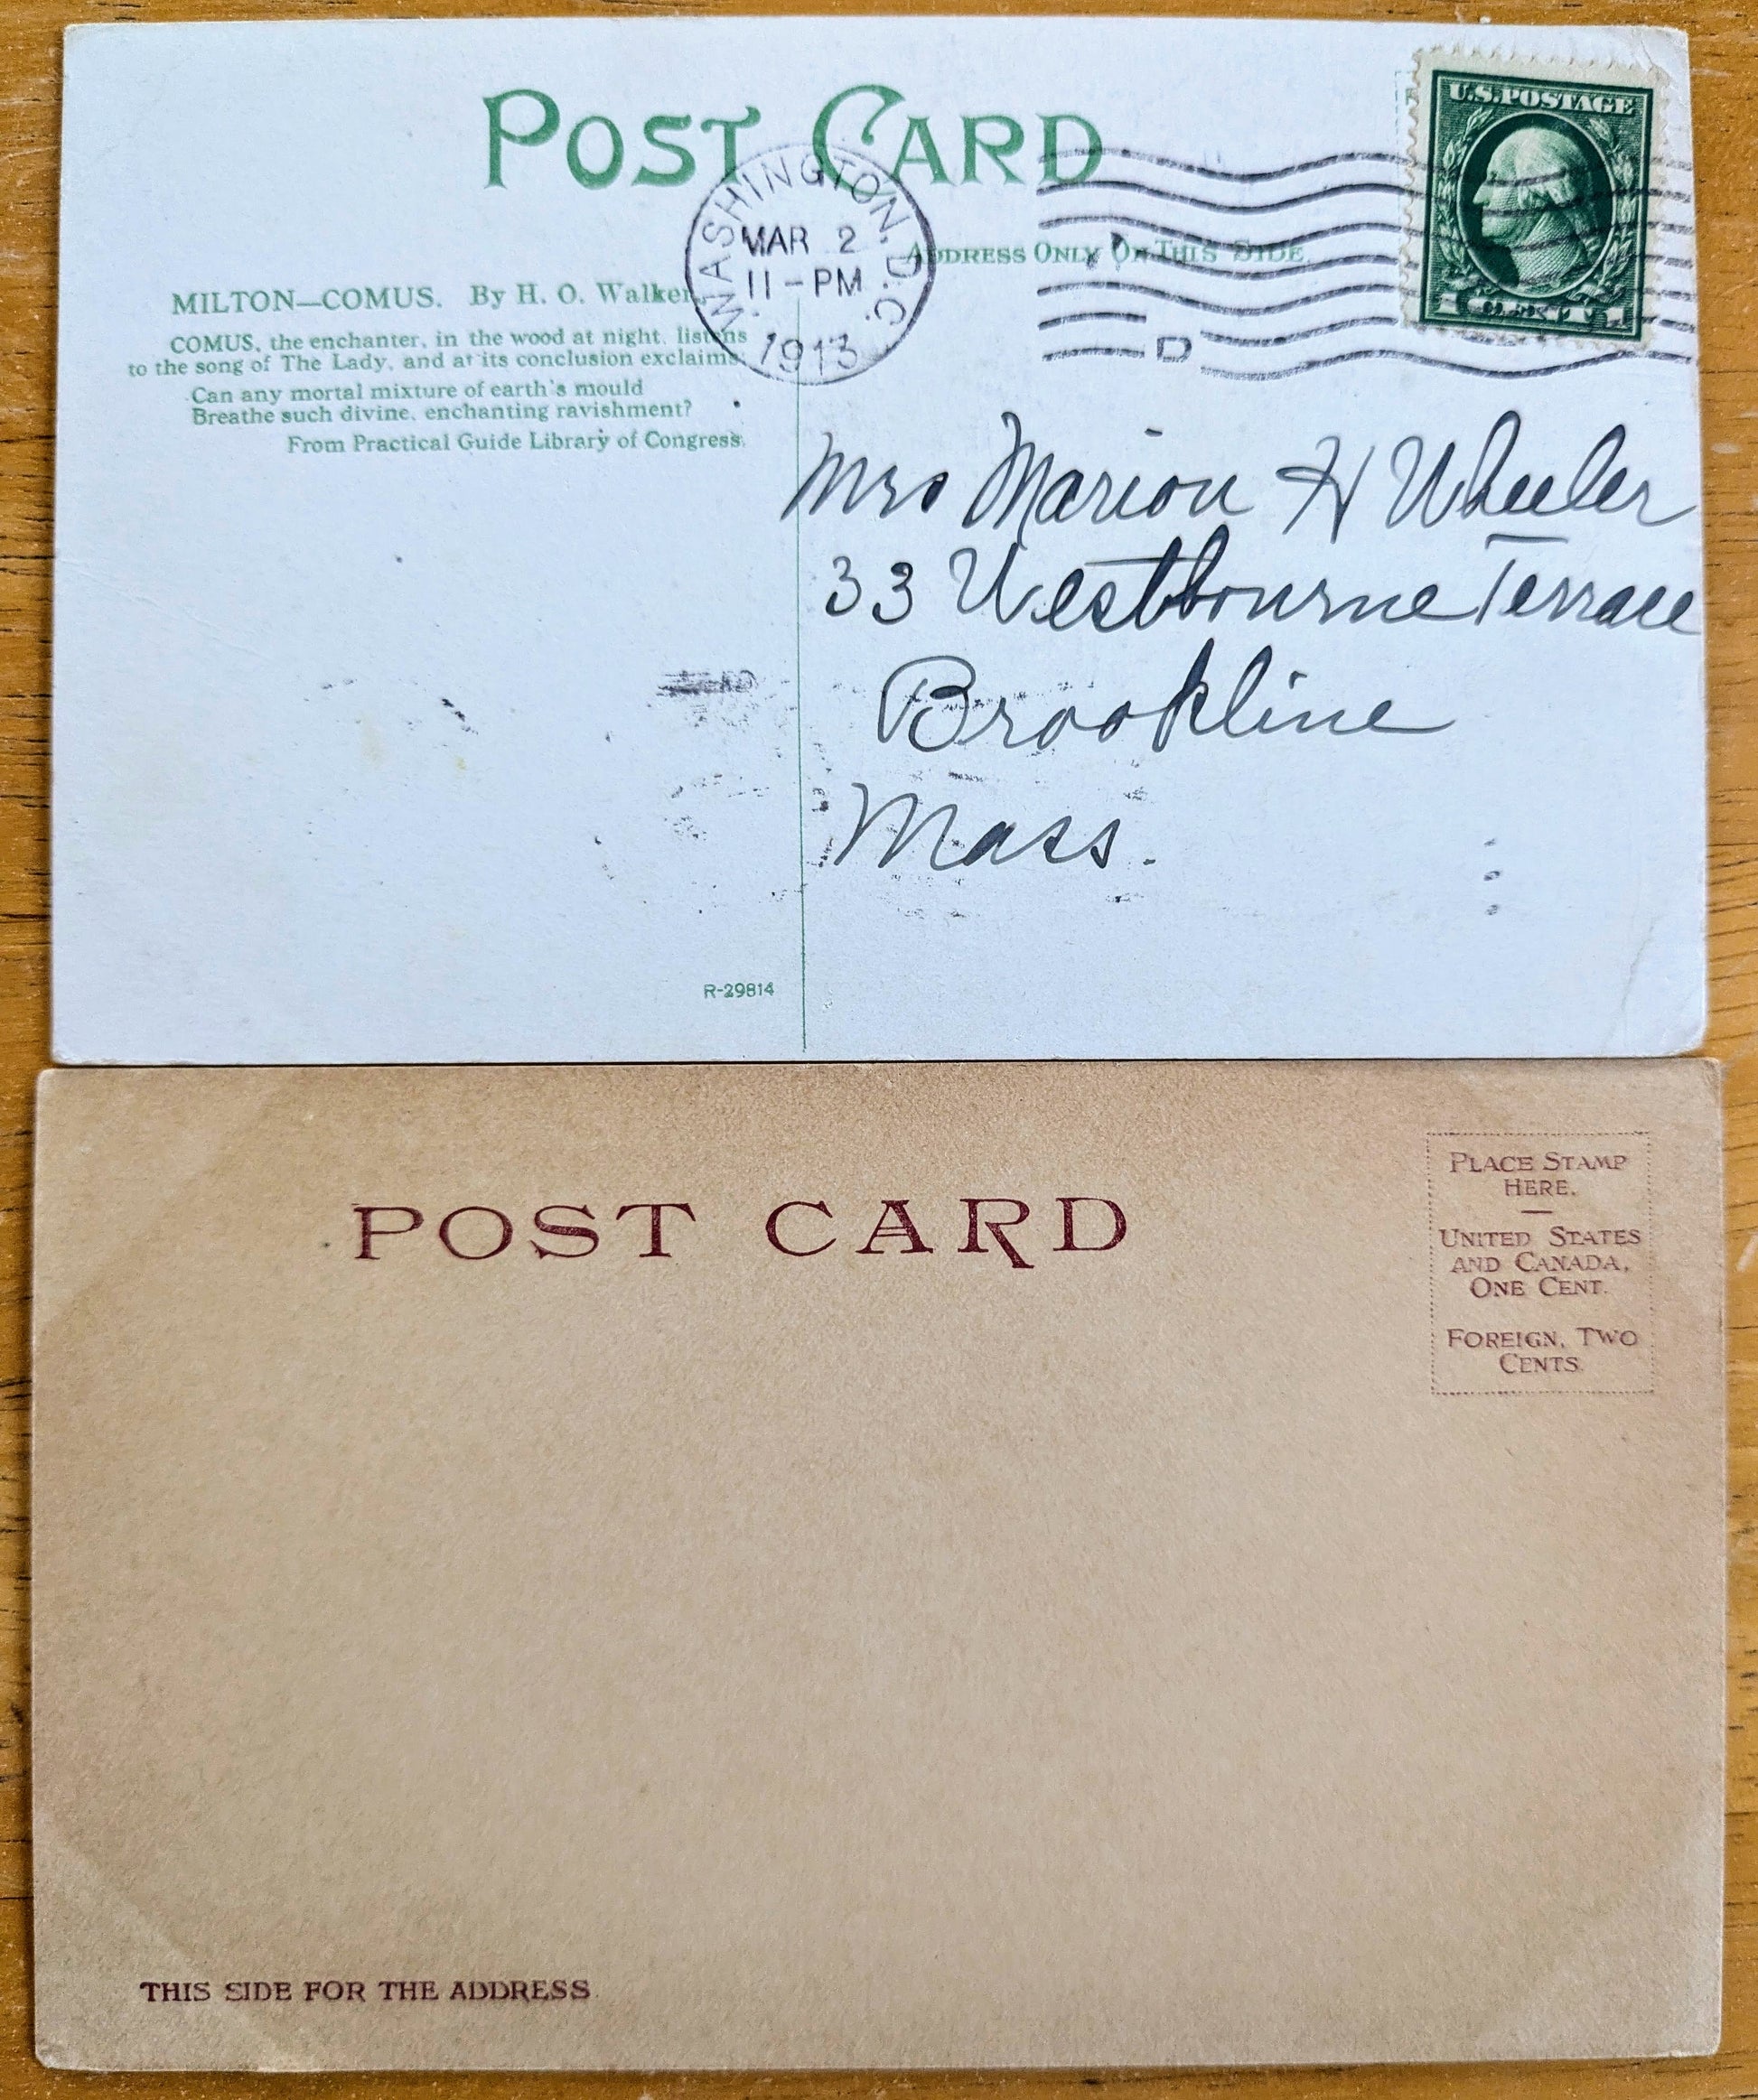 POST CARD
U.S. POSTAGE
WASHINGTON, D.C.
MAR 2
11-PM
1913
D
ADDRESS ONLY ON THIS SIDE
MILTON—COMUS. By H. O. Walker
COMUS, the enchanter, in the wood at night, listens
to the song of The Lady, and at its conclusion exclaims:
Can any mortal mixture of earth's mould
Breathe such divine, enchanting ravishment?
From Practical Guide Library of Congress.
Mrs Marion H Wheeler
33 Westbourne Terrace
Brookline
Mass.
R-29814
POST CARD
PLACE STAMP
HERE.
UNITED STATES
AND CANADA,
ONE CENT.
FOREIGN, TWO
CENTS
THIS SIDE FOR THE ADDRESS